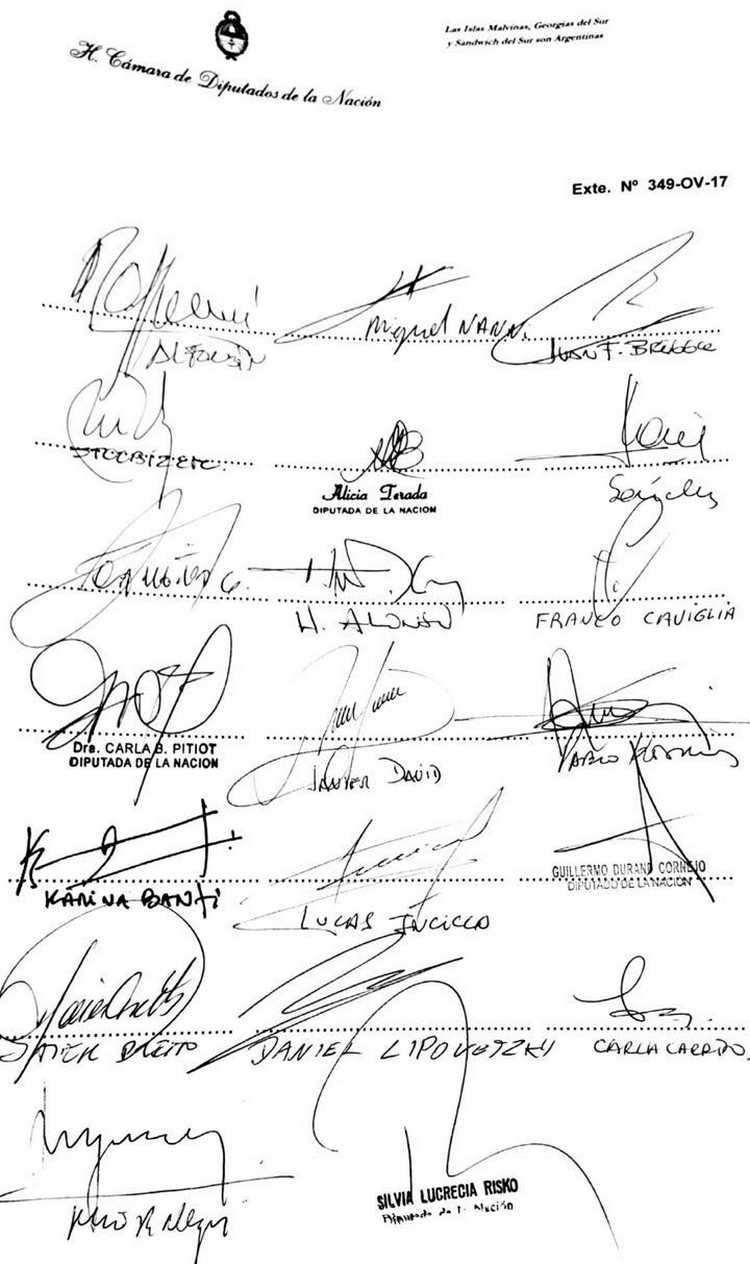 H. Cámara de Diputados de la Nación
Las Islas Malvinas, Georgias del Sur
y Sandwich del Sur son Argentinas
Exte. Nº 349-OV-17
ALFONSÍN
Miguel NANNI
JUAN F. BRÜGGE
STOLBIZER
Alicia Terada
DIPUTADA DE LA NACION
H. ALONSO
FRANCO CAVIGLIA
Dra. CARLA B. PITIOT
DIPUTADA DE LA NACION
JAVIER DAVID
PABLO
KARINA BANFI
LUCAS INCICCO
GUILLERMO DURAND CORNEJO
DIPUTADO DE LA NACION
DANIEL LIPOVETZKY
CARLA CARRIZO
SILVIA LUCRECIA RISKO